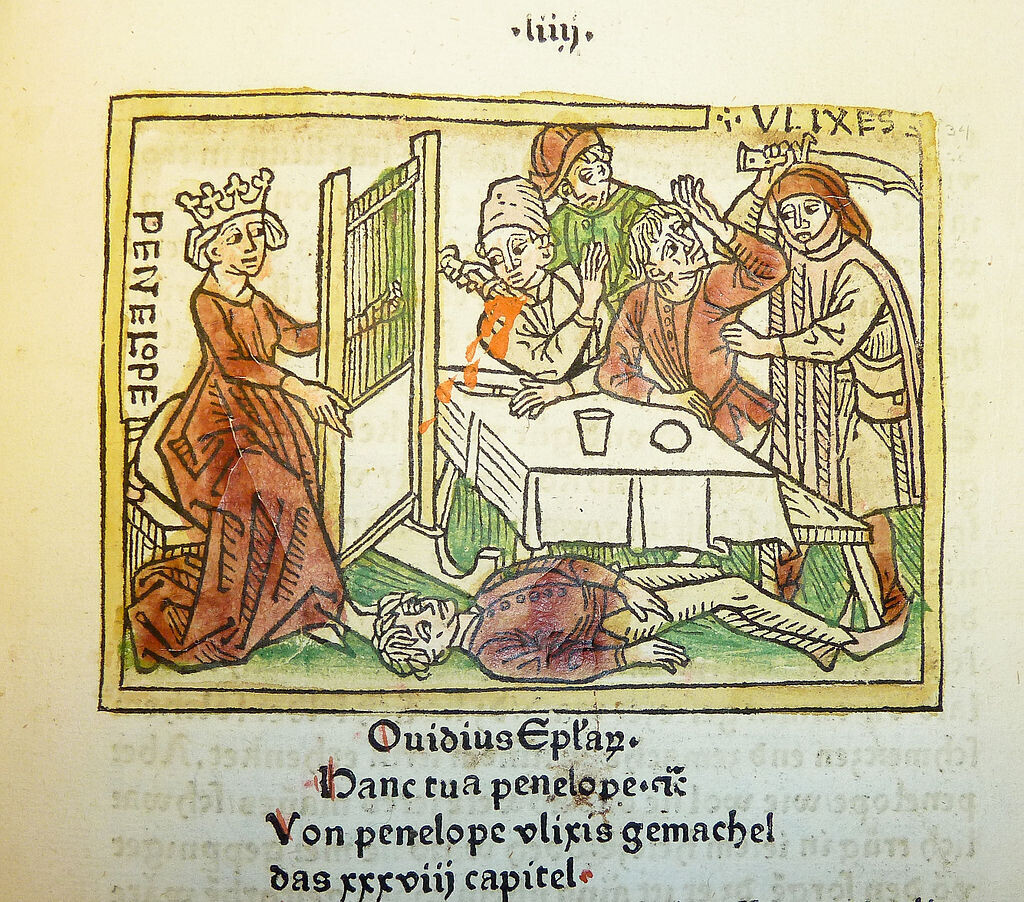 ·liiij·
VLIXES
34
PENELOPE
Ouidius Epl'aꝝ.
Hanc tua penelope·ꝛc̃
Von penelope vlixis gemachel
das xxxviij capitel·